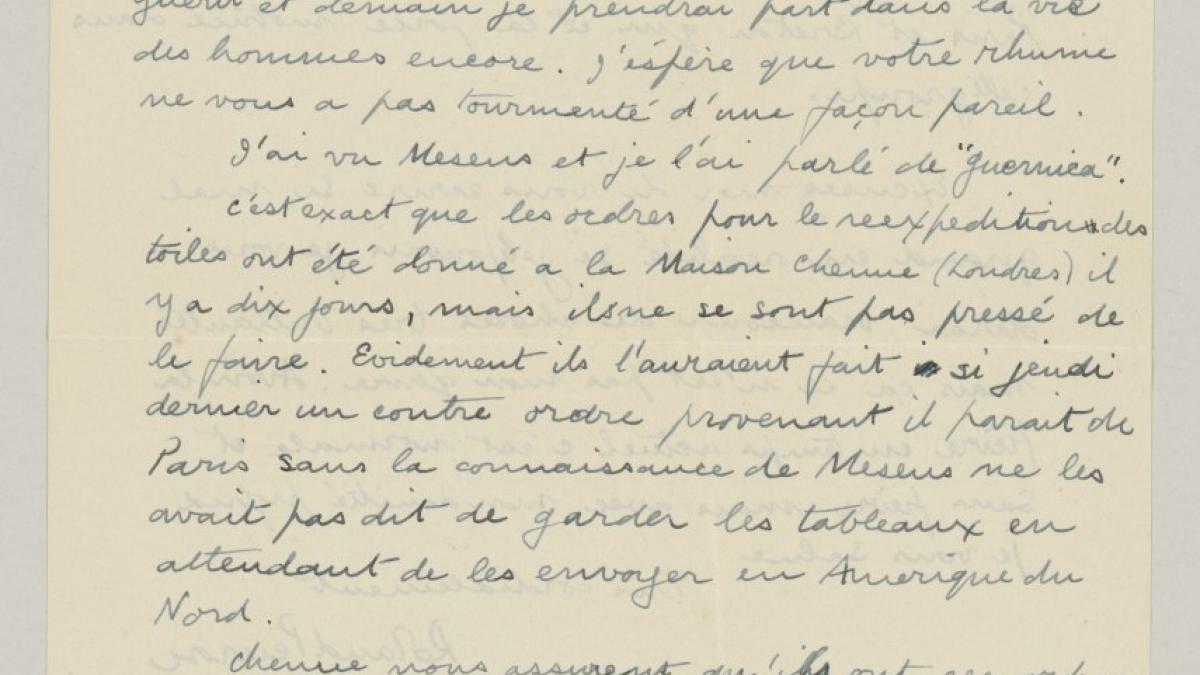 guéri et demain je prendrai part dans la vie
des hommes encore. J'éspère que votre rhume
ne vous a pas tourmenté d'une façon pareil.
J'ai vu Mesens et je l'ai parlé de "Guernica".
C'est exact que les ordres pour le reexpedition des
toiles ont été donné a la Maison Chenue (Londres) il
y a dix jours, mais ils ne se sont pas pressé de
le faire. Evidement ils l'auraient fait si jeudi
dernier un contre ordre provenant il parait de
Paris sans la connaissance de Mesens ne les
avait pas dit de garder les tableaux en
attendant de les envoyer en Amerique du
Nord.
Chenue nous assurent qu'ils ont